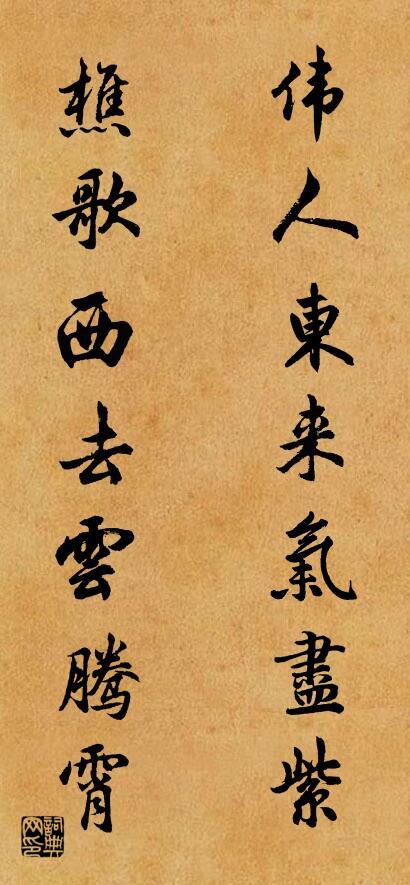 伟人東来氣盡紫
樵歌西去雲腾霄
詞典网印